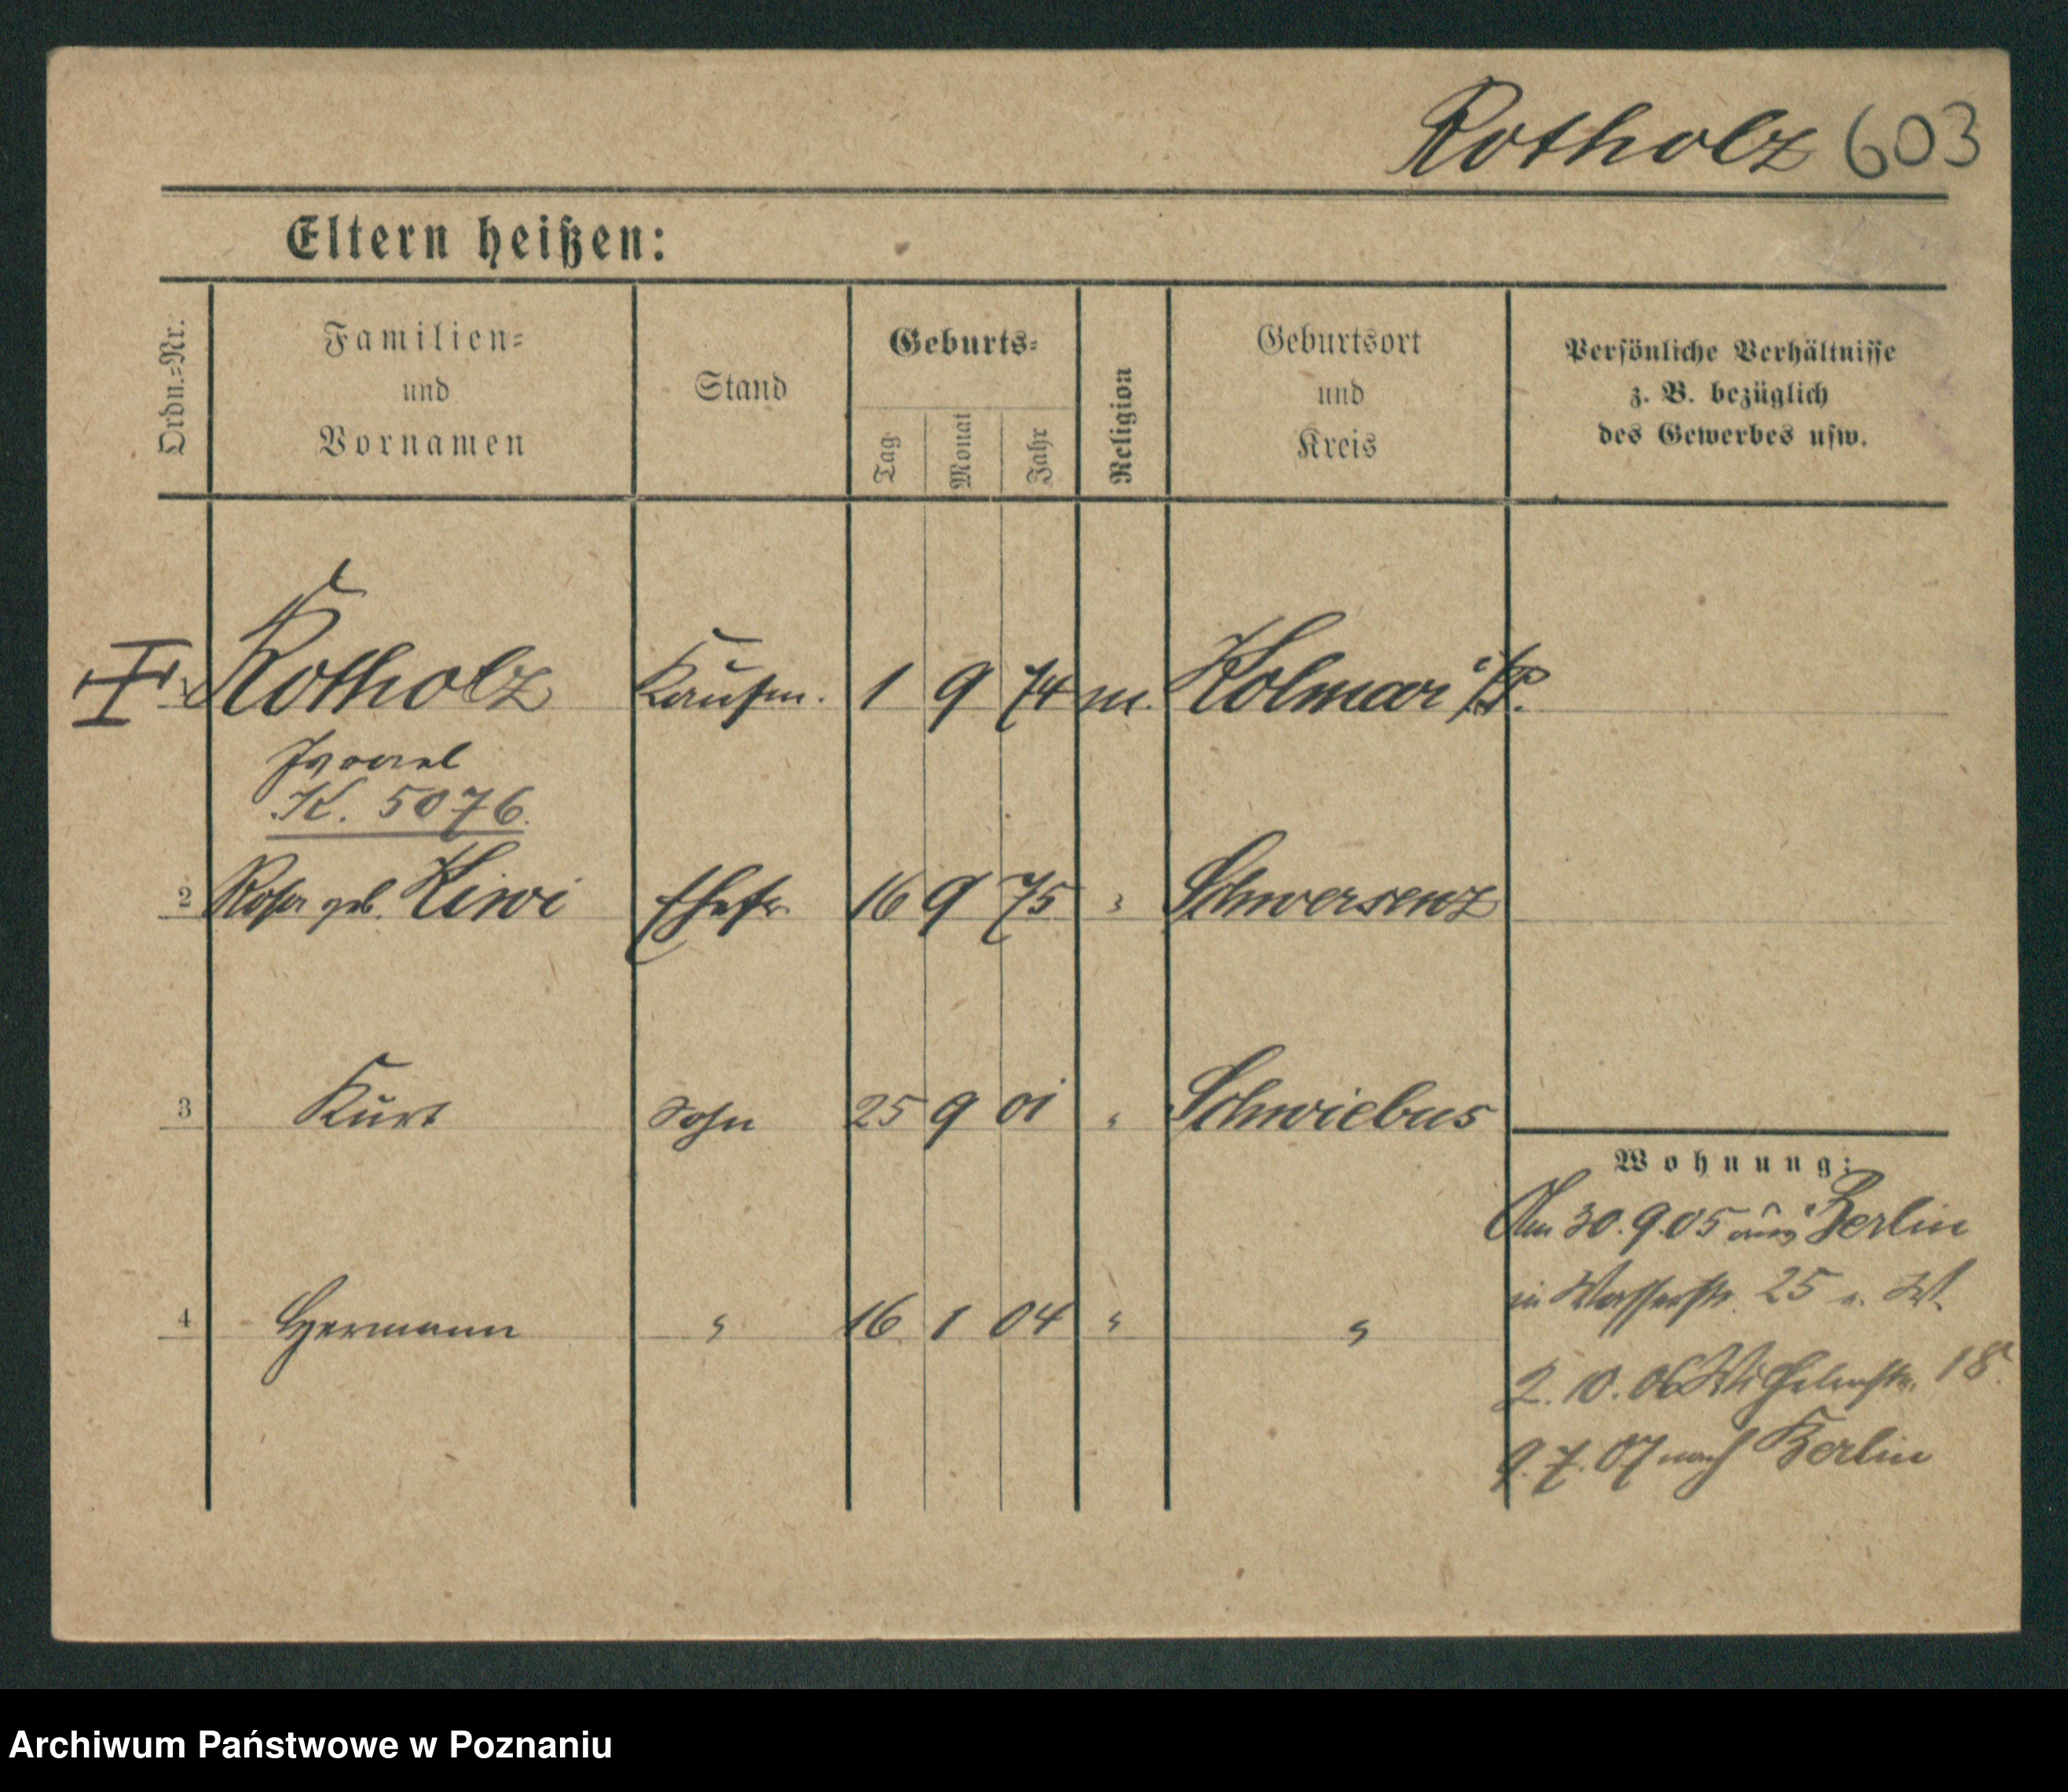 Rotholz 603
Eltern heißen:
Ordn.-Nr.
Familien-
und
Vornamen
Stand
Geburts-
Tag
Monat
Jahr
Religion
Geburtsort
und
Kreis
Persönliche Verhältnisse
z. B. bezüglich
des Gewerbes usw.
Rotholz Kaufm. 1 9 74 m. Kolmar i/P.
K. 5076.
2 Rosa geb. Kiwi Ehefr. 16 9 75 " Schwersenz
3 Kurt Sohn 25 9 01 " Schwiebus
Wohnung:
Am 30.9.05 aus Berlin
in Wasserstr. 25 b. W.
4 Hermann " 16 1 04 " "
2. 10. 06 Wilhelmstr. 18
9. 7. 07 nach Berlin
Archiwum Państwowe w Poznaniu